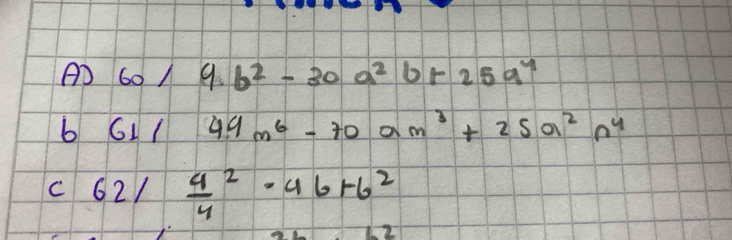 A) 60 / 9 b² - 30 a² b + 25 a⁴
b 61 / 49 m⁶ - 70 a m³ + 25 a² n⁴
c 62 / - 4b + b²
2b b²